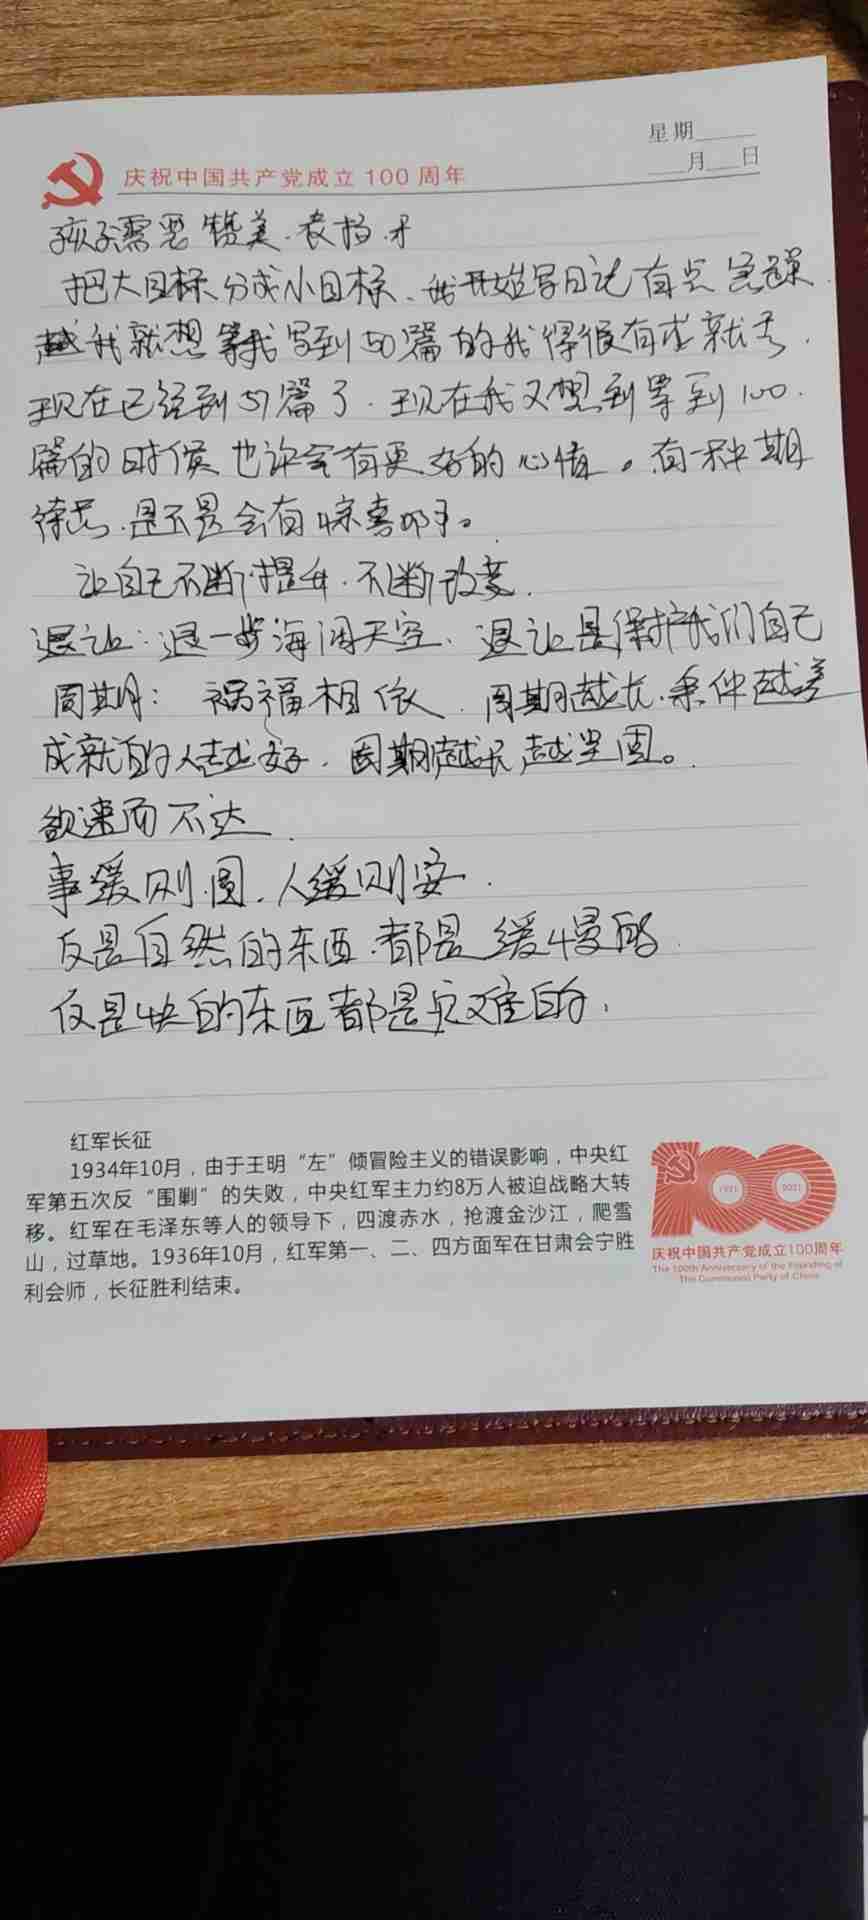 星期
月 日
庆祝中国共产党成立 100 周年
孩子需要赞美.表扬.才
把大目标分成小目标、我开始写日记有点急躁.
我就想等我写到50篇的我得很有成就了.
现在已经到51篇了.现在我又想到等到100.
篇的时候也许会有更好的心情。有一种期
待哦.是不是会有惊喜呀。
让自己不断提升.不断改变.
退让:退一步海阔天空、退让是保护我们自己
周期: 祸福相依.周期越长.条件越差
成就的人越好.周期越长越坚固。
欲速而不达.
事缓则圆.人缓则安.
反是自然的东西.都是缓慢的.
反是快的东西都是灾难的.
红军长征
1934年10月，由于王明“左”倾冒险主义的错误影响，中央红
军第五次反“围剿”的失败，中央红军主力约8万人被迫战略大转
移。红军在毛泽东等人的领导下，四渡赤水，抢渡金沙江，爬雪
山，过草地。1936年10月，红军第一、二、四方面军在甘肃会宁胜
利会师，长征胜利结束。
100
1921 2021
庆祝中国共产党成立100周年
The 100th Anniversary of the Founding of
The Communist Party of China